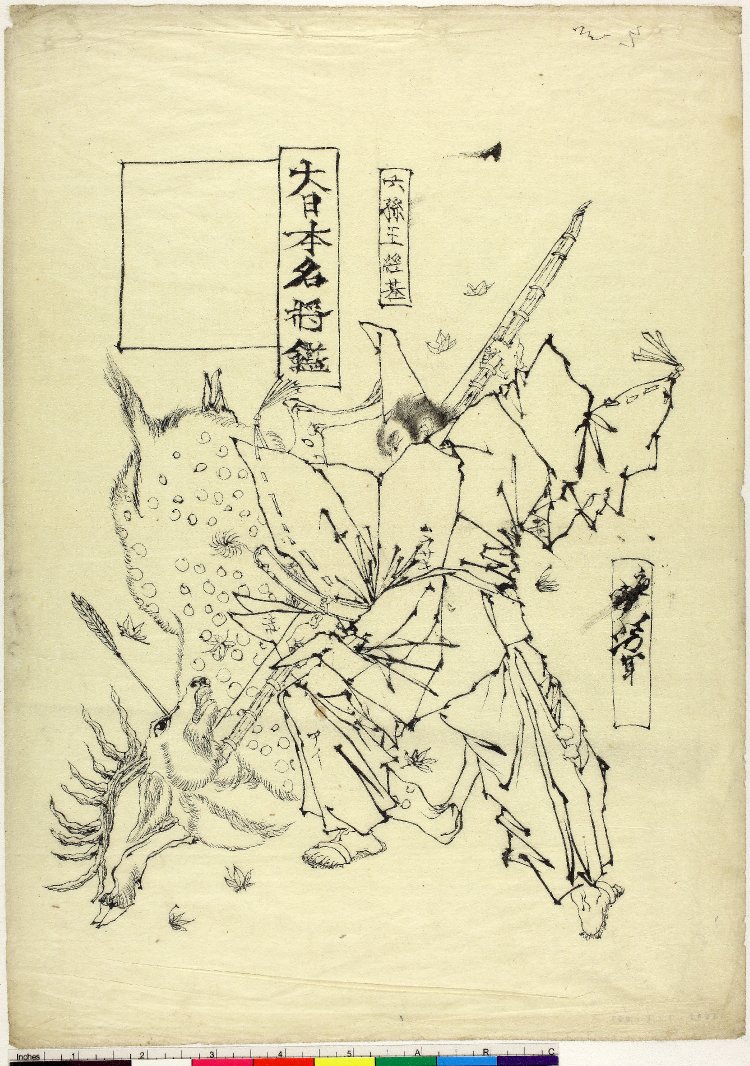 大日本名将鑑
六孫王經基
芳年
Inches 1 2 3 4 5 A R C